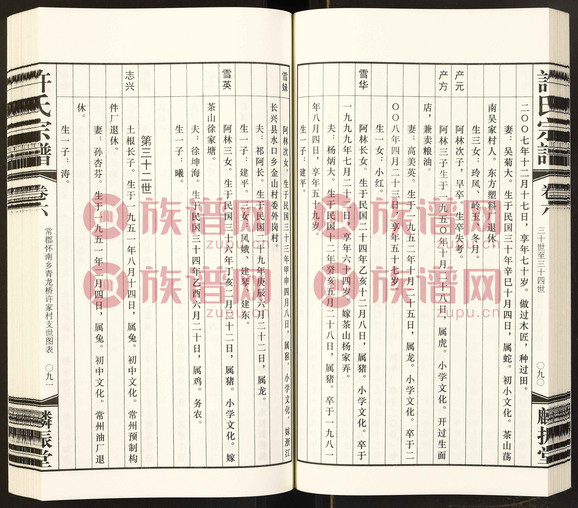 許氏宗譜
卷六
三十世至三十四世
〇九〇
麟振堂
二〇〇七年十二月十七日，享年七十岁。做过木匠，种过田。
妻：吴菊大。生于民国三十年辛巳十月四日，属蛇。初小文化。茶山荡
南吴家村人。东方塑料厂退休。
生三女：玲凤、岭玉、冬月。
产元
阿林次子，早卒。生卒失考。
产方
阿林三子生于一九五〇年十月二十八日，属虎。小学文化。开过生面
店，兼卖粮油。
妻：高美英。生于一九五二年十月二十五日，属龙。小学文化。卒于二
〇〇八年四月二十三日，享年五十七岁。
生一女：小红。
雪华
阿林长女。生于民国二十四年乙亥十二月八日，属猪。小学文化。卒于
一九九九年七月二十日，享年六十四岁。嫁茶山杨家弄。
夫：杨炳大。生于民国十二年癸亥五月二十八日，属猪。卒于一九八一
年八月四日，享年五十九岁。
雪妹
阿林次女。生于民国三十三年甲申四月八日，属猴。小学文化。嫁浙江
长兴县水口乡金山村委外岗村。
夫：祁阿长。生于民国二十九年庚辰六月二十二日，属龙。
生一子：建平。二女：凤娥、建琴、建东。
雪英
阿林三女。生于民国三十六年丁亥二月三十二日，属猪。小学文化。嫁
茶山徐家塘。
夫：徐坤海。生于民国三十四年乙酉六月二十日，属鸡。务农。
生一子：曦。
第三十二世
志兴
土根长子。生于一九五一年八月十四日，属兔。初中文化。常州预制构
件厂退休。
妻：孙杏芬。生于一九五一年二月四日，属兔。初中文化。常州油厂退
休。
生一子：涛。
許氏宗譜
卷六
常郡怀南乡青龙桥许家村支世图表
〇九一
麟振堂
族谱网
zupu.cn
族谱网
zupu.cn
族谱网
zupu.cn
族谱网
zupu.cn